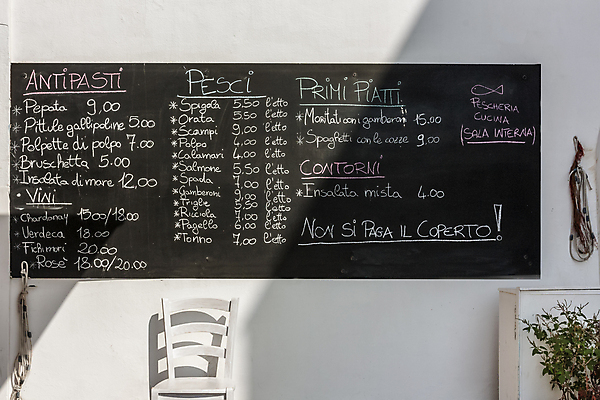 ANTIPASTI
* Pepata 9,00
* Pittule gallipoline 5.00
* Polpette di polpo 7.00
* Bruschetta 5.00
* Insalata di mare 12,00
VINI
* Chardonay 15.00/18.00
* Verdeca 18.00
* Fichimori 20.00
* Rosè 18.00/20.00
PESCI
* Spigola 5.50 l'etto
* Orata 5.50 l'etto
* Scampi 9,00 l'etto
* Polpo 4.00 l'etto
* Calamari 4.00 l'etto
* Salmone 5.50 l'etto
* Spada 7.00 l'etto
* Gamberoni 9.00 l'etto
* Triglie 5.50 l'etto
* Ricciola 7.00 l'etto
* Pagello 6.00 l'etto
* Tonno 7,00 l'etto
PRIMI PIATTI
* Maritati con i gamberoni 15.00
* Spaghetti con le cozze 9,00
CONTORNI
* Insalata mista 4.00
NON SI PAGA IL COPERTO!
PESCHERIA
CUCINA
(SALA INTERNA)